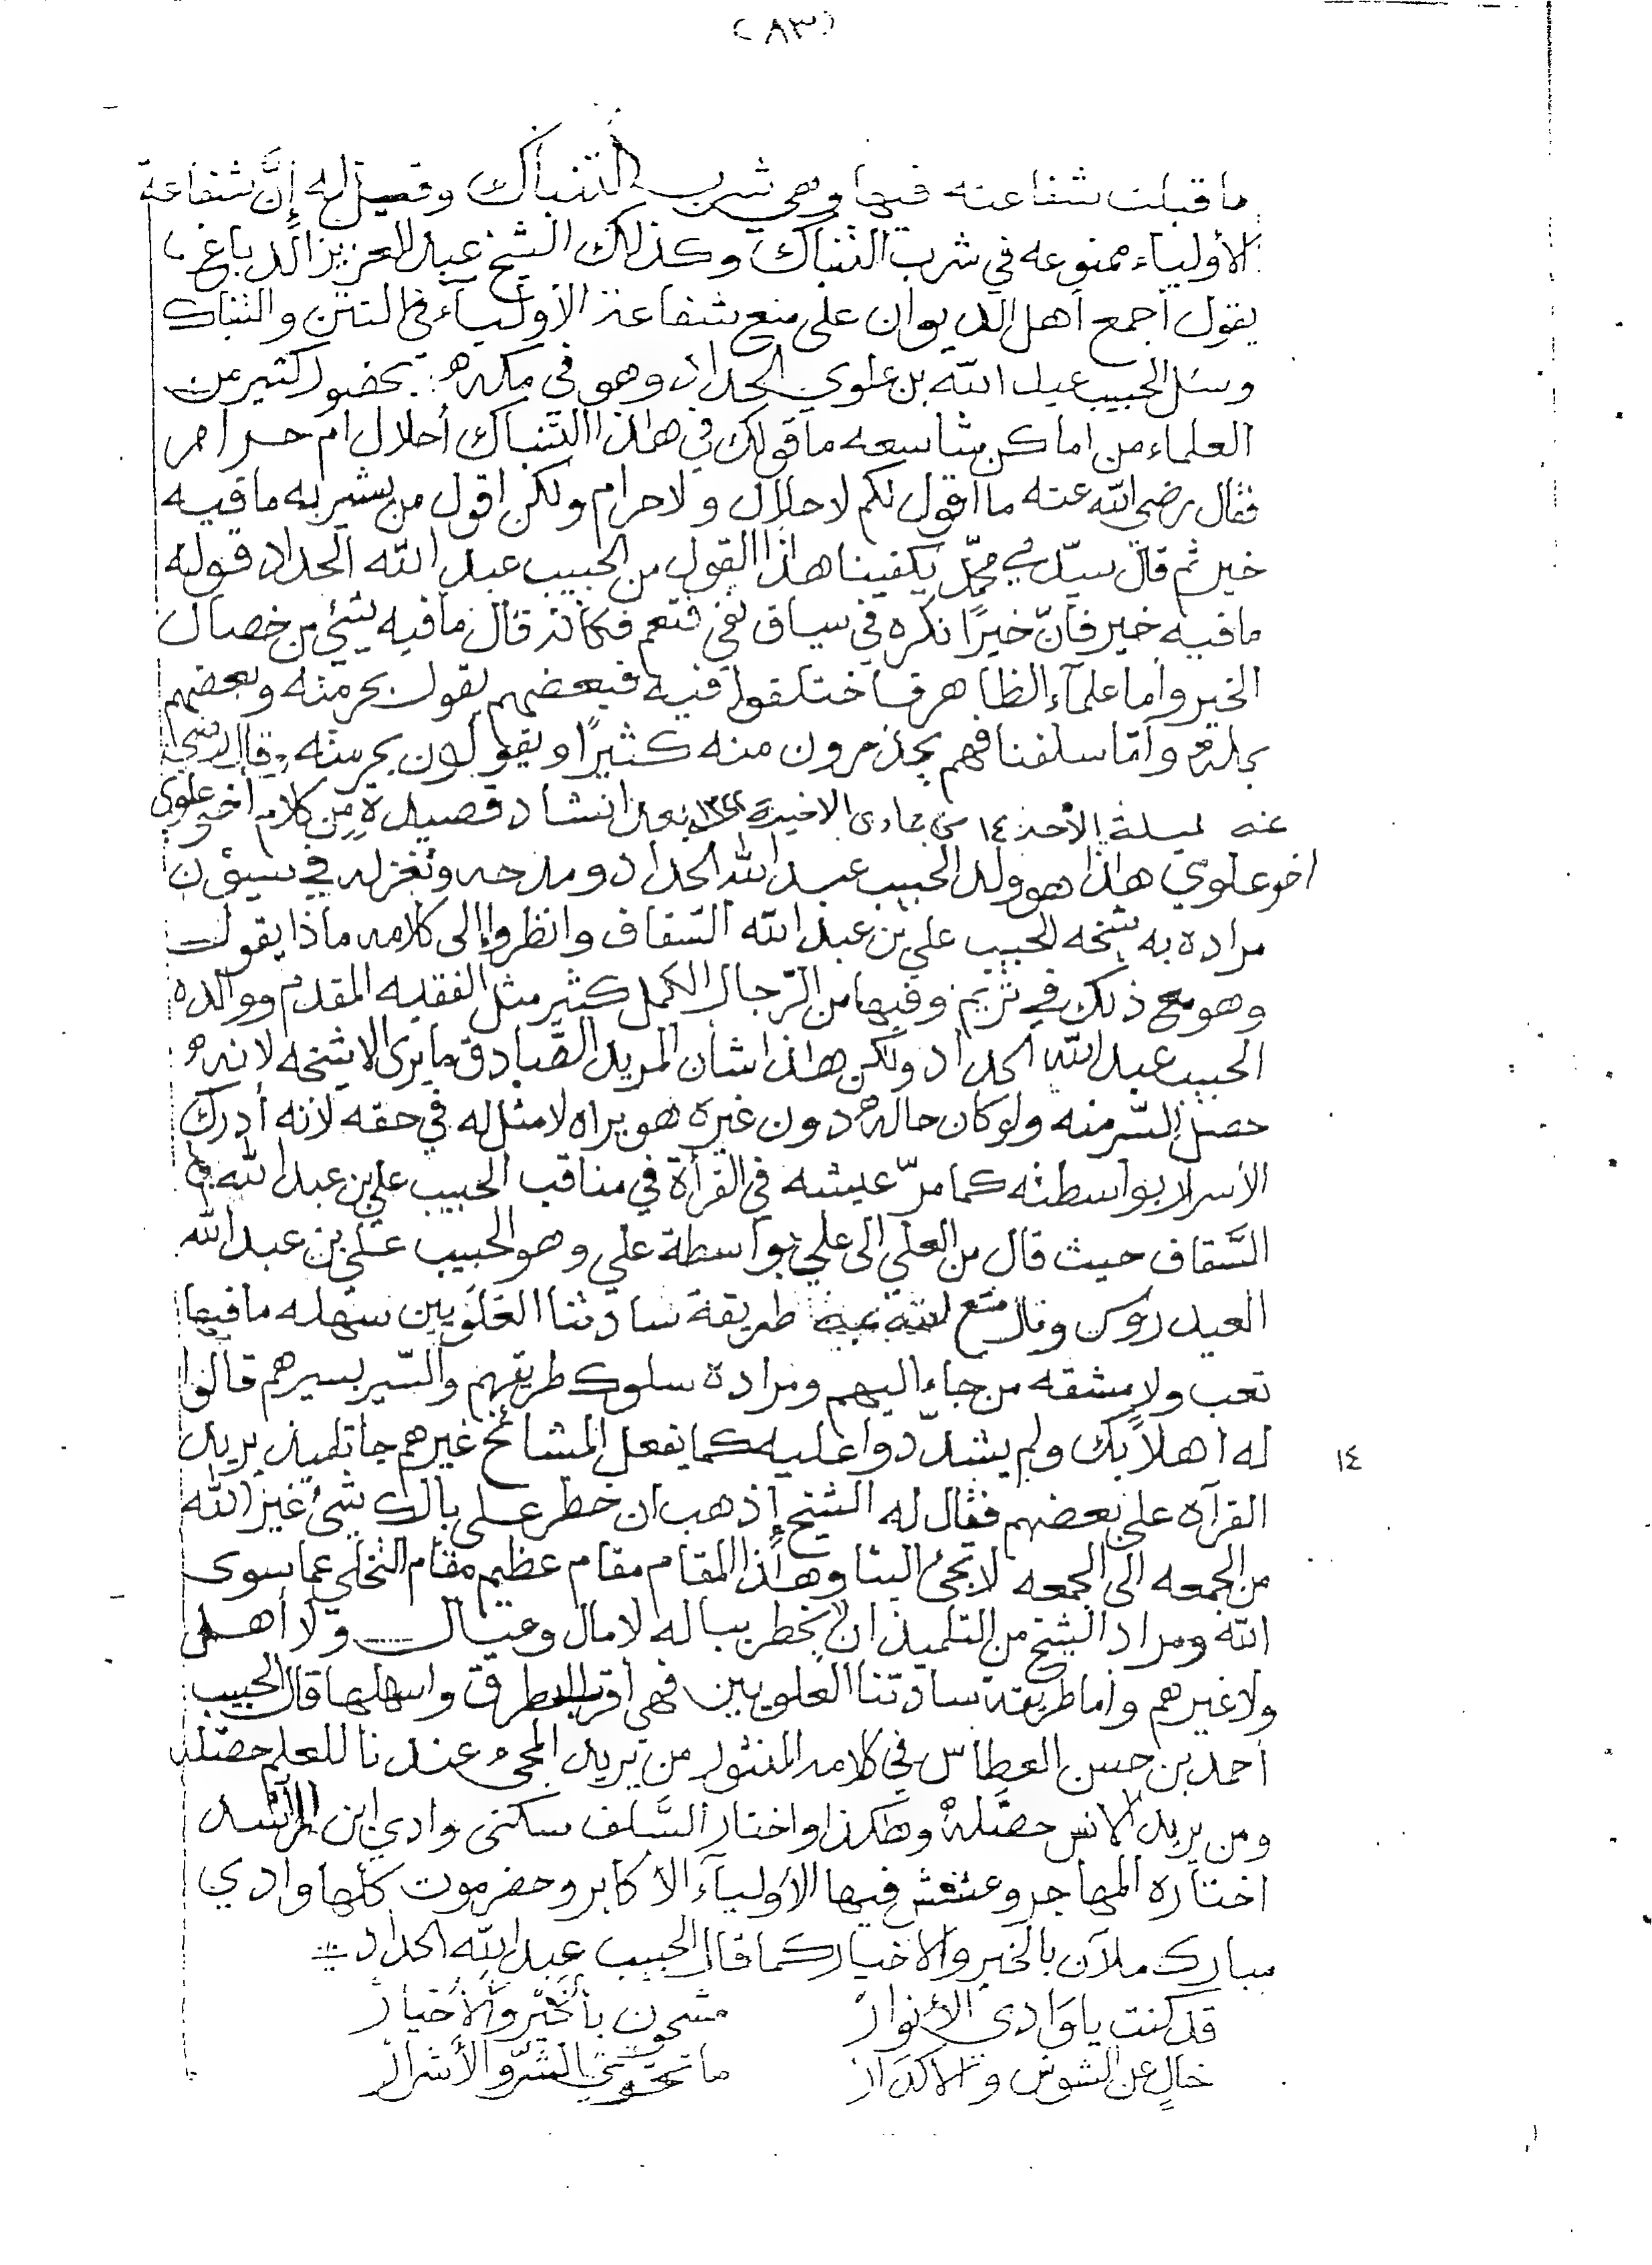 (٨٣)
ما قبلت شفاعته فيها وهي شرب التنباك وقيل له إنَّ شفاعة
الأولياء ممنوعه في شرب التنباك وكذلك الشيخ عبد العزيز الدباغ
يقول أجمع أهل الديوان على منع شفاعة الأولياء في التتن والتنباك
وسئل الحبيب عبد الله بن علوي الحداد وهو في مكه بحضور كثير من
العلماء من اماكن شاسعه ما قولك في هاذا التنباك أحلال ام حرام
فقال رضي الله عنه ما أقول لكم لا حلال ولا حرام ولكن اقول من يشربه ما فيه
خير ثم قال سيّدي محمّد يكفينا هاذا القول من الحبيب عبد الله الحداد قوله
ما فيه خير فانّ خيرًا نكره في سياق نفي فتعم فكانه قال ما فيه شئ من خصال
الخير وأما علمآء الظاهر فاختلفوا فيه فبعضهم يقول بحرمته وبعضهم
بحله وأمّا سلفنا فهم يحذرون منه كثيرًا ويقولون بحرمته وقال رضي الله
عنه ليلة الأحد ١٤ من جمادى الاخيره بعد انشاد قصيدة من كلام أخو علوي
اخو علوي هاذا هو ولد الحبيب عبد الله الحداد ومدحه وتغزله في سيؤن
مراده به شيخه الحبيب علي بن عبد الله السّقاف وانظروا إلى كلامه ماذا يقول
وهو مع ذلك في تريم وفيها من الرّجال الكمل كثير مثل الفقيه المقدم ووالده
الحبيب عبد الله الحداد ولكن هاذا شان المريد الصَّادق ما يرى الا شيخه لانه
حصل السّر منه ولو كان حاله دون غيره هو يراه لا مثل له في حقه لأنه أدرك
الأسرار بواسطته كما مرّ عيشه في القرأة في مناقب الحبيب علي بن عبد الله
السَّقاف حيث قال من العلي الى علي بواسطة علي وهو الحبيب علي بن عبد الله
العيدروس وقال متع الله به طريقة سادتنا العلويين سهله ما فيها
تعب ولا مشقه من جاء اليهم ومراده سلوك طريقهم والسّير بسيرهم قالوا
له اهلاً بك ولم يشدّدوا عليه كما يفعل المشائخ غيرهم جا تلميذ يريد
١٤
القرآه على بعضهم فقال له الشيخ إذهب ان خطر على بالك شيءٌ غير الله
من الجمعه الى الجمعه لا تجئ الينا وهاذا المقام مقام عظيم مقام التخلي عما سوى
الله ومراد الشيخ من التلميذ ان لا يخطر بباله لا مال وعيال ولا أهل
ولا غيرهم وأما طريقة سادتنا العلويين فهي أقرب الطرق واسهلها قال الحبيب
أحمد بن حسن العطاس في كلامه المنثور من يريد المجيء عندنا للعلم حصّله
ومن يريد الانس حصَّله وهكذا واختار السَّلف سكنى وادي ابن راشد
اختاره المهاجر وعشّش فيها الأولياء الأكابر وحضرموت كلها وادي
مبارك ملآن بالخير والاخيار كما قال الحبيب عبد الله الحداد
قد كنت يا وَادي الأنوارْ مشحون بالخيْر والأخيارْ
خالٍ عن الشوش والاكدَارْ ما تحتوي الشرّ والأشرارْ